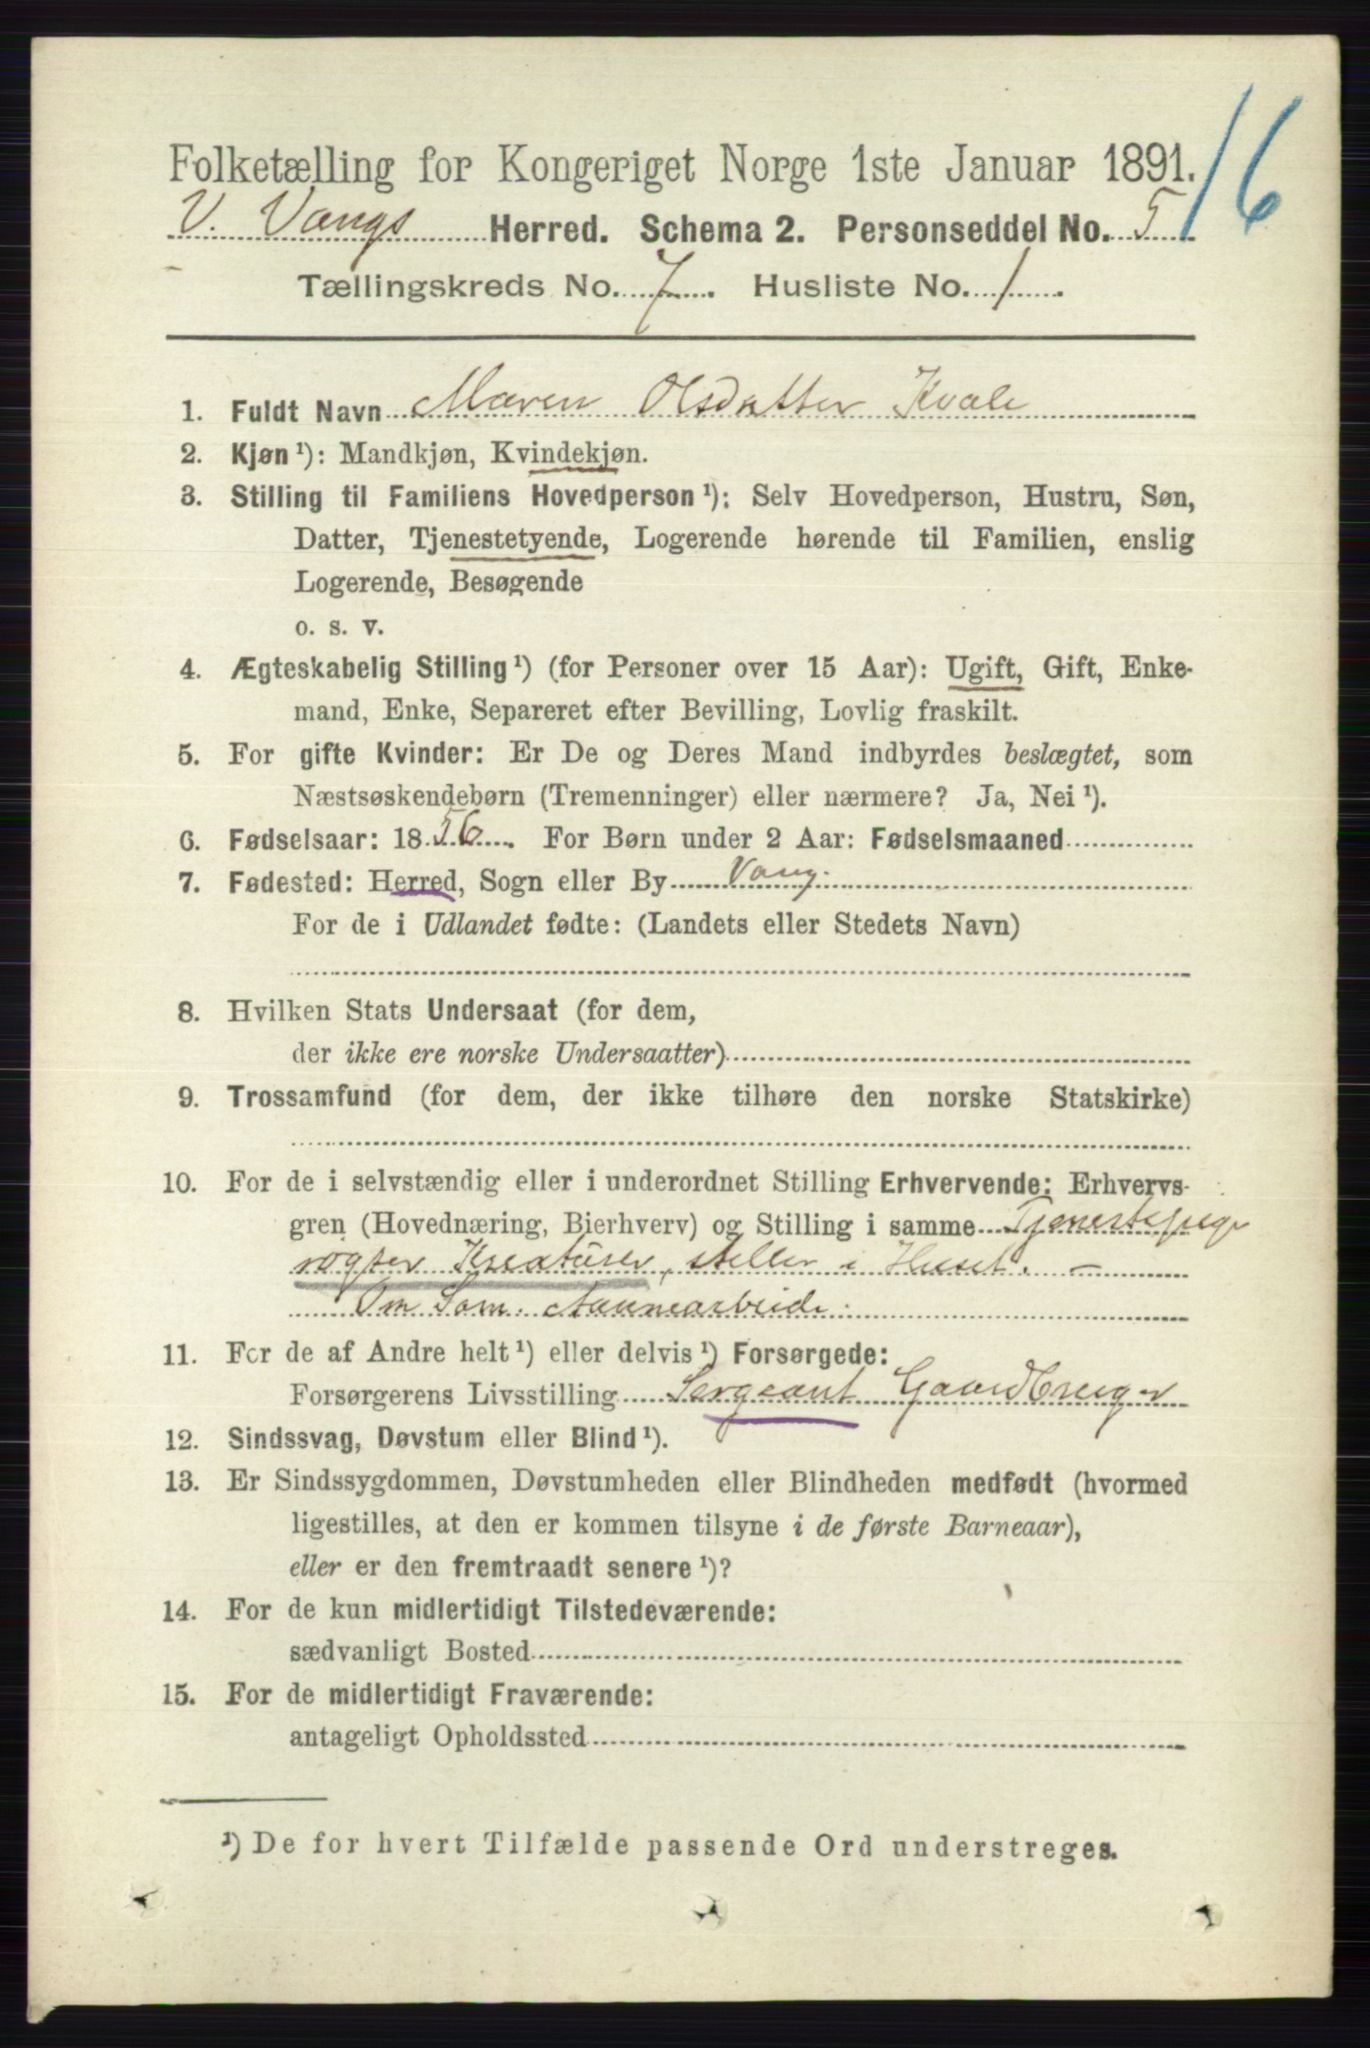 16
Folketælling for Kongeriget Norge 1ste Januar 1891.
V. Vangs Herred. Schema 2. Personseddel No. 5
Tællingskreds No. 7. Husliste No. 1.
1. Fuldt Navn Maren Olsdatter Kvale
2. Kjøn ¹): Mandkjøn, Kvindekjøn.
3. Stilling til Familiens Hovedperson ¹): Selv Hovedperson, Hustru, Søn,
Datter, Tjenestetyende, Logerende hørende til Familien, enslig
Logerende, Besøgende
o. s. v.
4. Ægteskabelig Stilling ¹) (for Personer over 15 Aar): Ugift, Gift, Enke-
mand, Enke, Separeret efter Bevilling, Lovlig fraskilt.
5. For gifte Kvinder: Er De og Deres Mand indbyrdes beslægtet, som
Næstsøskendebørn (Tremenninger) eller nærmere? Ja, Nei ¹).
6. Fødselsaar: 1856. For Børn under 2 Aar: Fødselsmaaned
7. Fødested: Herred, Sogn eller By Vang.
For de i Udlandet fødte: (Landets eller Stedets Navn)
8. Hvilken Stats Undersaat (for dem,
der ikke ere norske Undersaatter)
9. Trossamfund (for dem, der ikke tilhøre den norske Statskirke)
10. For de i selvstændig eller i underordnet Stilling Erhvervende: Erhvervs-
gren (Hovednæring, Bierhverv) og Stilling i samme Tjenestepige
røgter Kreaturer, steller i Huset. –
Om Som. Aannearbeide.
11. For de af Andre helt ¹) eller delvis ¹) Forsørgede:
Forsørgerens Livsstilling Sergeant Gaardbruger
12. Sindssvag, Døvstum eller Blind ¹).
13. Er Sindssygdommen, Døvstumheden eller Blindheden medfødt (hvormed
ligestilles, at den er kommen tilsyne i de første Barneaar),
eller er den fremtraadt senere ¹)?
14. For de kun midlertidigt Tilstedeværende:
sædvanligt Bosted
15. For de midlertidigt Fraværende:
antageligt Opholdssted
¹) De for hvert Tilfælde passende Ord understreges.